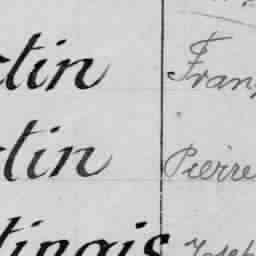 ctin Fran
tin Pierre
tingis Josep